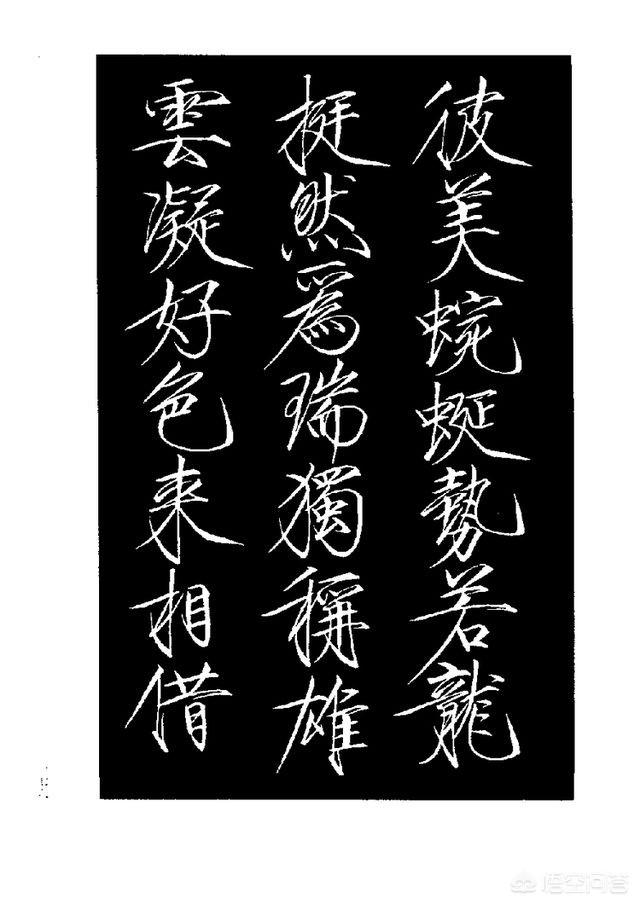 彼美蜿蜒勢若龍
挺然爲瑞獨稱雄
雲凝好色來相借
悟空问答